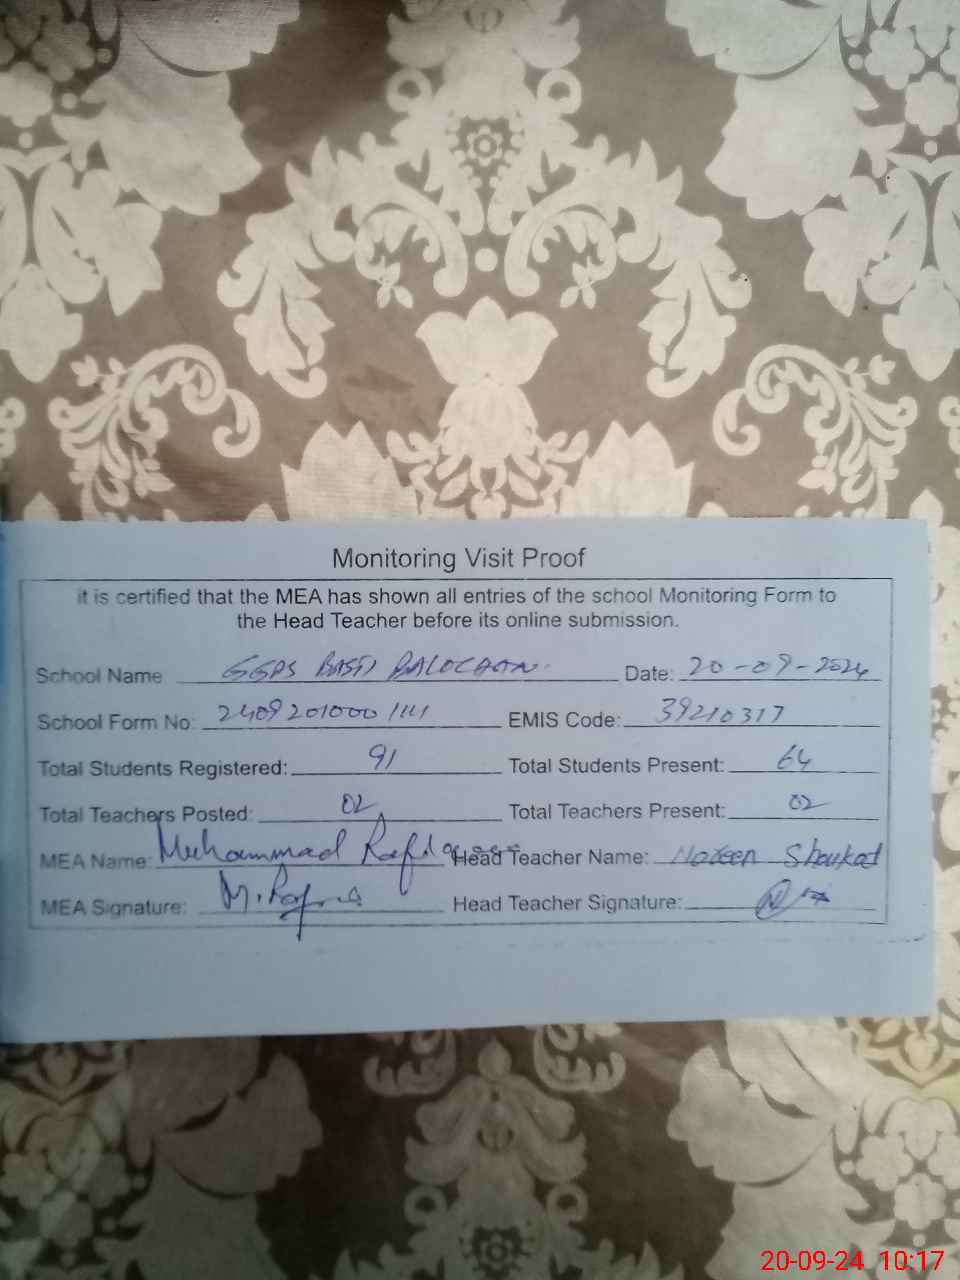 Monitoring Visit Proof
it is certified that the MEA has shown all entries of the school Monitoring Form to
the Head Teacher before its online submission.
School Name GGPS BASTI BALOCHAN. Date: 20-09-2024
School Form No: 2409201000 1111 EMIS Code: 39210317
Total Students Registered: 91 Total Students Present: 64
Total Teachers Posted: 02 Total Teachers Present: 02
MEA Name: Muhammad Head Teacher Name: Noreen Shoukat
MEA Signature: Head Teacher Signature:
20-09-24 10:17